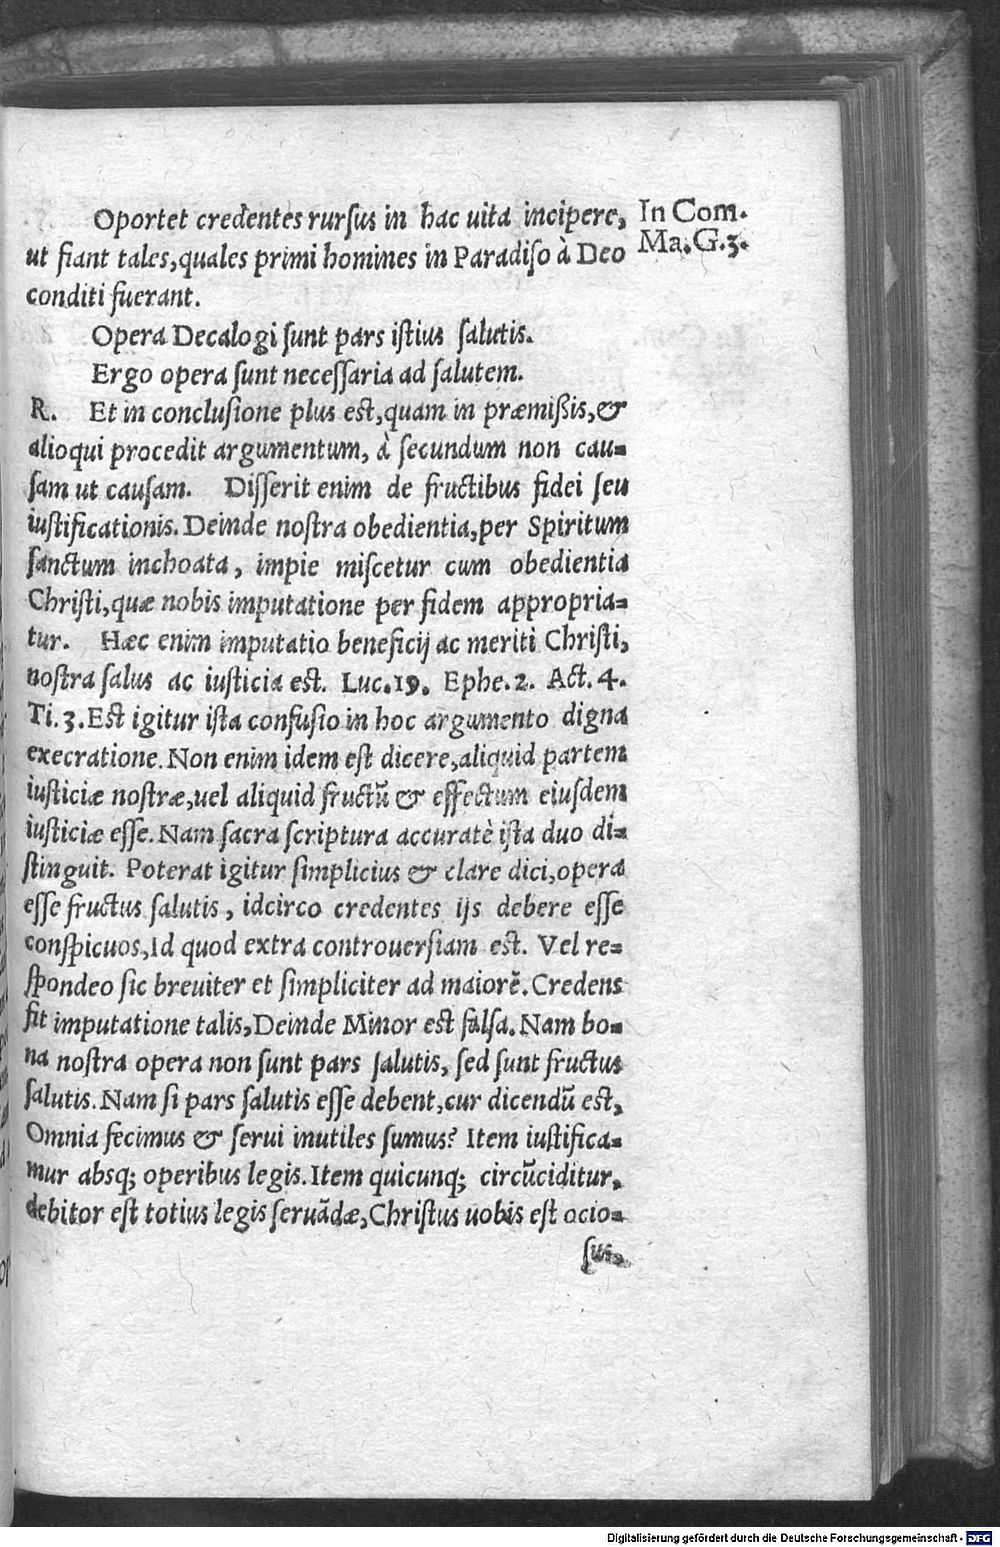 Oportet credentes rursus in hac uita incipere,
In Com.
Ma. G. 3.
ut fiant tales, quales primi homines in Paradiso à Deo
conditi fuerant.
Opera Decalogi sunt pars istius salutis.
Ergo opera sunt necessaria ad salutem.
R. Et in conclusione plus est, quam in præmißis, &
alioqui procedit argumentum, à secundum non cau-
sam ut causam. Disserit enim de fructibus fidei seu
iustificationis. Deinde nostra obedientia, per Spiritum
sanctum inchoata, impie miscetur cum obedientia
Christi, quæ nobis imputatione per fidem appropria-
tur. Hæc enim imputatio beneficij ac meriti Christi,
nostra salus ac iusticia est. Luc. 19. Ephe. 2. Act. 4.
Ti. 3. Est igitur ista confusio in hoc argumento digna
execratione. Non enim idem est dicere, aliquid partem
iusticiæ nostræ, uel aliquid fructũ & effectum eiusdem
iusticiæ esse. Nam sacra scriptura accuratè ista duo di-
stinguit. Poterat igitur simplicius & clare dici, opera
esse fructus salutis, idcirco credentes ijs debere esse
conspicuos, Id quod extra controuersiam est. Vel re-
spondeo sic breuiter et simpliciter ad maiorẽ. Credens
fit imputatione talis, Deinde Minor est falsa. Nam bo-
na nostra opera non sunt pars salutis, sed sunt fructus
salutis. Nam si pars salutis esse debent, cur dicendũ est,
Omnia fecimus & serui inutiles sumus? Item iustifica-
mur absq; operibus legis. Item quicunq; circũciditur,
debitor est totius legis seruãdæ, Christus uobis est ocio-
sus,
Digitalisierung gefördert durch die Deutsche Forschungsgemeinschaft - DFG